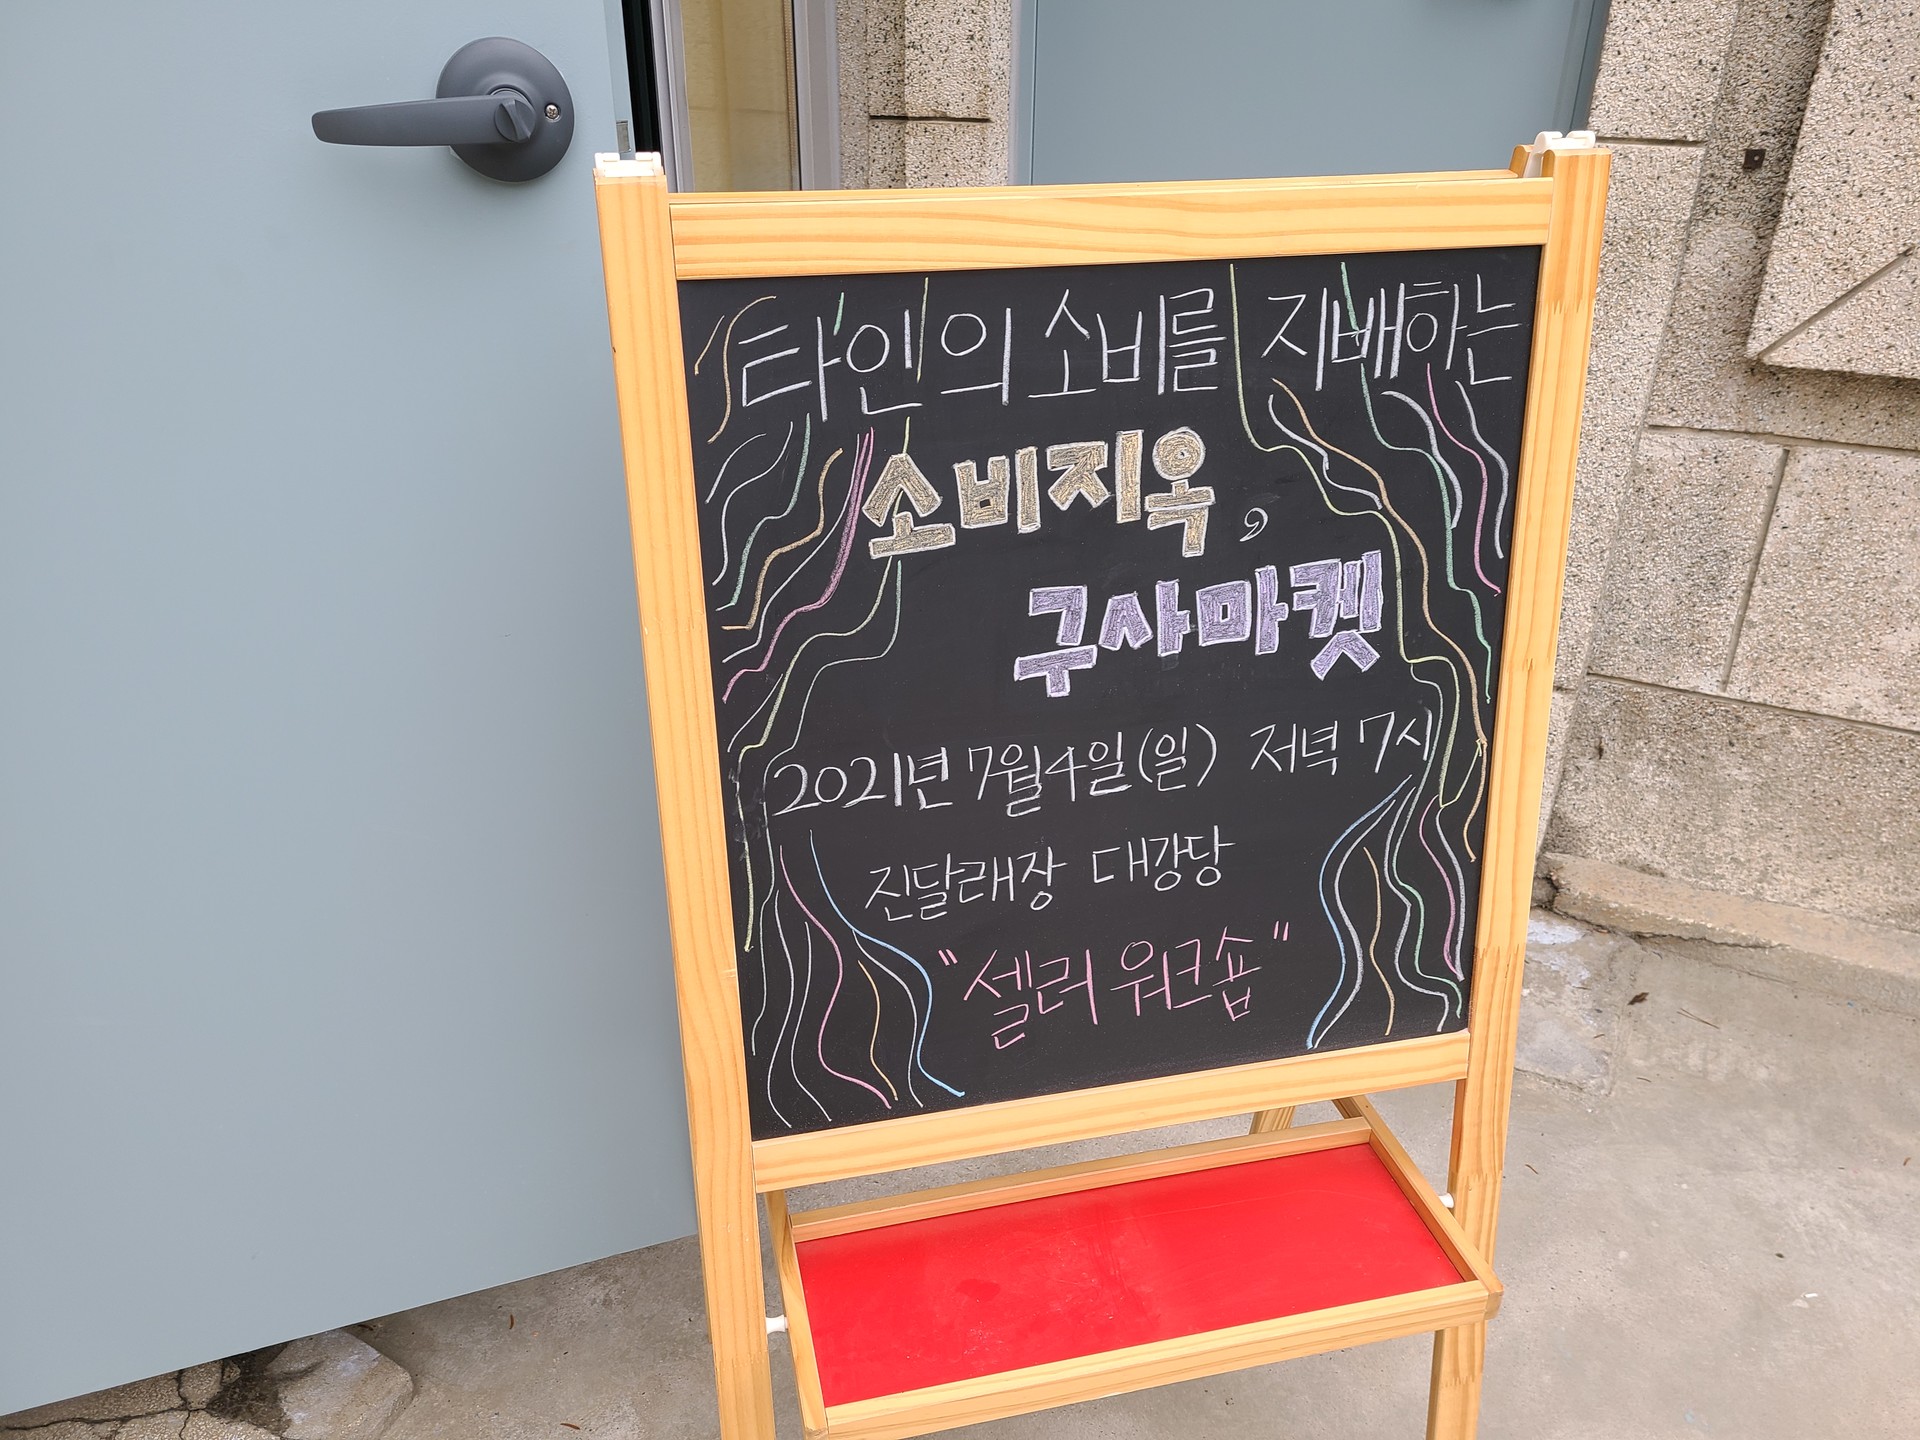 타인의 소비를 지배하는
소비지옥,
구사마켓
2021년 7월 4일(일) 저녁 7시
진달래장 대강당
"셀러 워크숍"